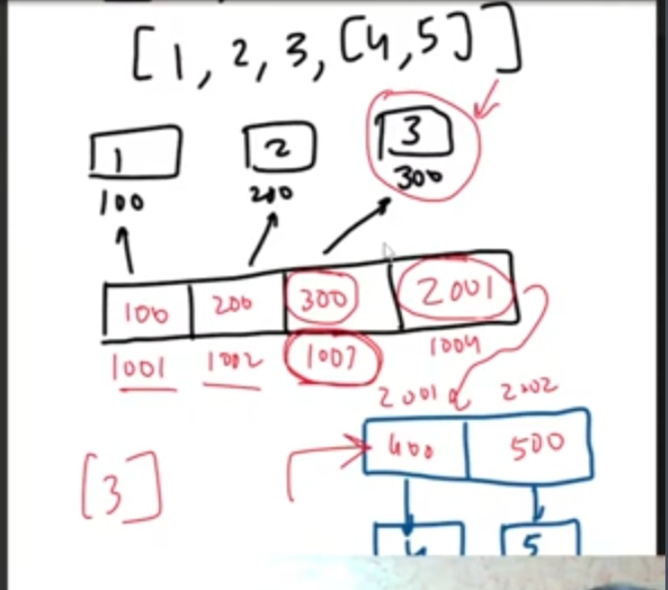 [1, 2, 3, [4,5]]
1 2 3
100 200 300
100 200 300 2001
1001 1002 1003 1004
2001 2002
400 500
[3]
4 5